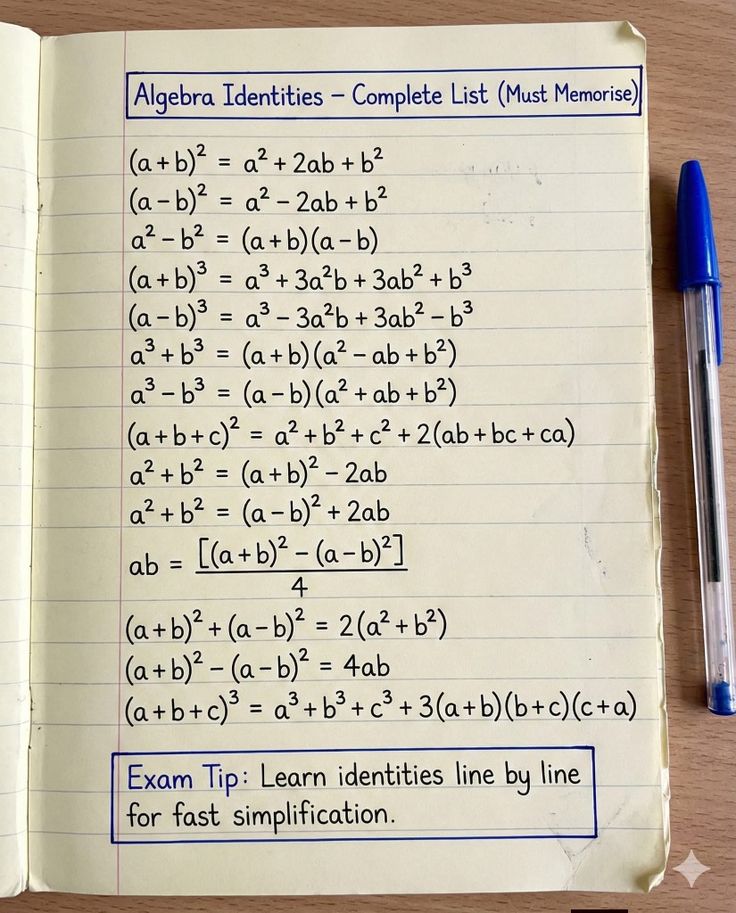 Algebra Identities – Complete List (Must Memorise)
(a + b)² = a² + 2ab + b²
(a – b)² = a² – 2ab + b²
a² – b² = (a + b)(a – b)
(a + b)³ = a³ + 3a²b + 3ab² + b³
(a – b)³ = a³ – 3a²b + 3ab² – b³
a³ + b³ = (a + b)(a² – ab + b²)
a³ – b³ = (a – b)(a² + ab + b²)
(a + b + c)² = a² + b² + c² + 2(ab + bc + ca)
a² + b² = (a + b)² – 2ab
a² + b² = (a – b)² + 2ab
ab = [(a + b)² – (a – b)²] / 4
(a + b)² + (a – b)² = 2(a² + b²)
(a + b)² – (a – b)² = 4ab
(a + b + c)³ = a³ + b³ + c³ + 3(a + b)(b + c)(c + a)
Exam Tip: Learn identities line by line
for fast simplification.